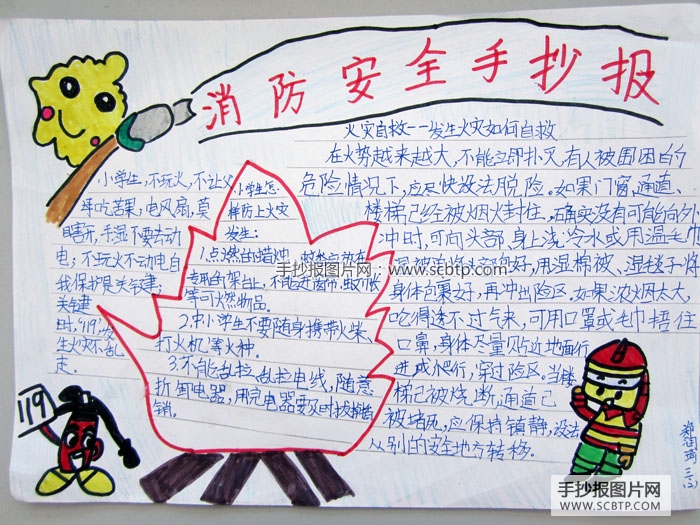 消防安全手抄报
小学生,不玩火,不让父
耳吃苦果,电风扇,莫
瞎玩,手湿不要去动
电;不玩火不动电自
我保护是关键;
关键
时,"119",发
生火灾不乱
走。
119
小学生怎
样防上火灾
发生:
1.点燃的蜡烛、
专用的架台上,不能
等可燃物品。
2.中小学生不要随身携带火柴、
打火机等火种。
3.不能乱拉、乱拉电线,随意
拆卸电器,用完电器要及时拔掉插
销。
火灾自救--发生火灾如何自救
在火势越来越大,不能立即扑灭,有人被围困的
危险情况下,应尽快设法脱险。如果门窗、通道、
楼梯已经被烟火封住,确实没有可能向外
冲时,可向头部,身上浇冷水或用湿毛巾
好,用湿棉被、湿毯子将
身体包裹好,再冲出险区。如果浓烟太大,
呛得透不过气来,可用口罩或毛巾捂住
口鼻,身体尽量贴近地面行
进或爬行,穿过险区。当楼
梯已被烧断,通道已
被堵死,应保持镇静,设法
从别的安全地方转移。
手抄报图片网 www.scbtp.com
手抄报图片网
WWW.SCBTP.COM